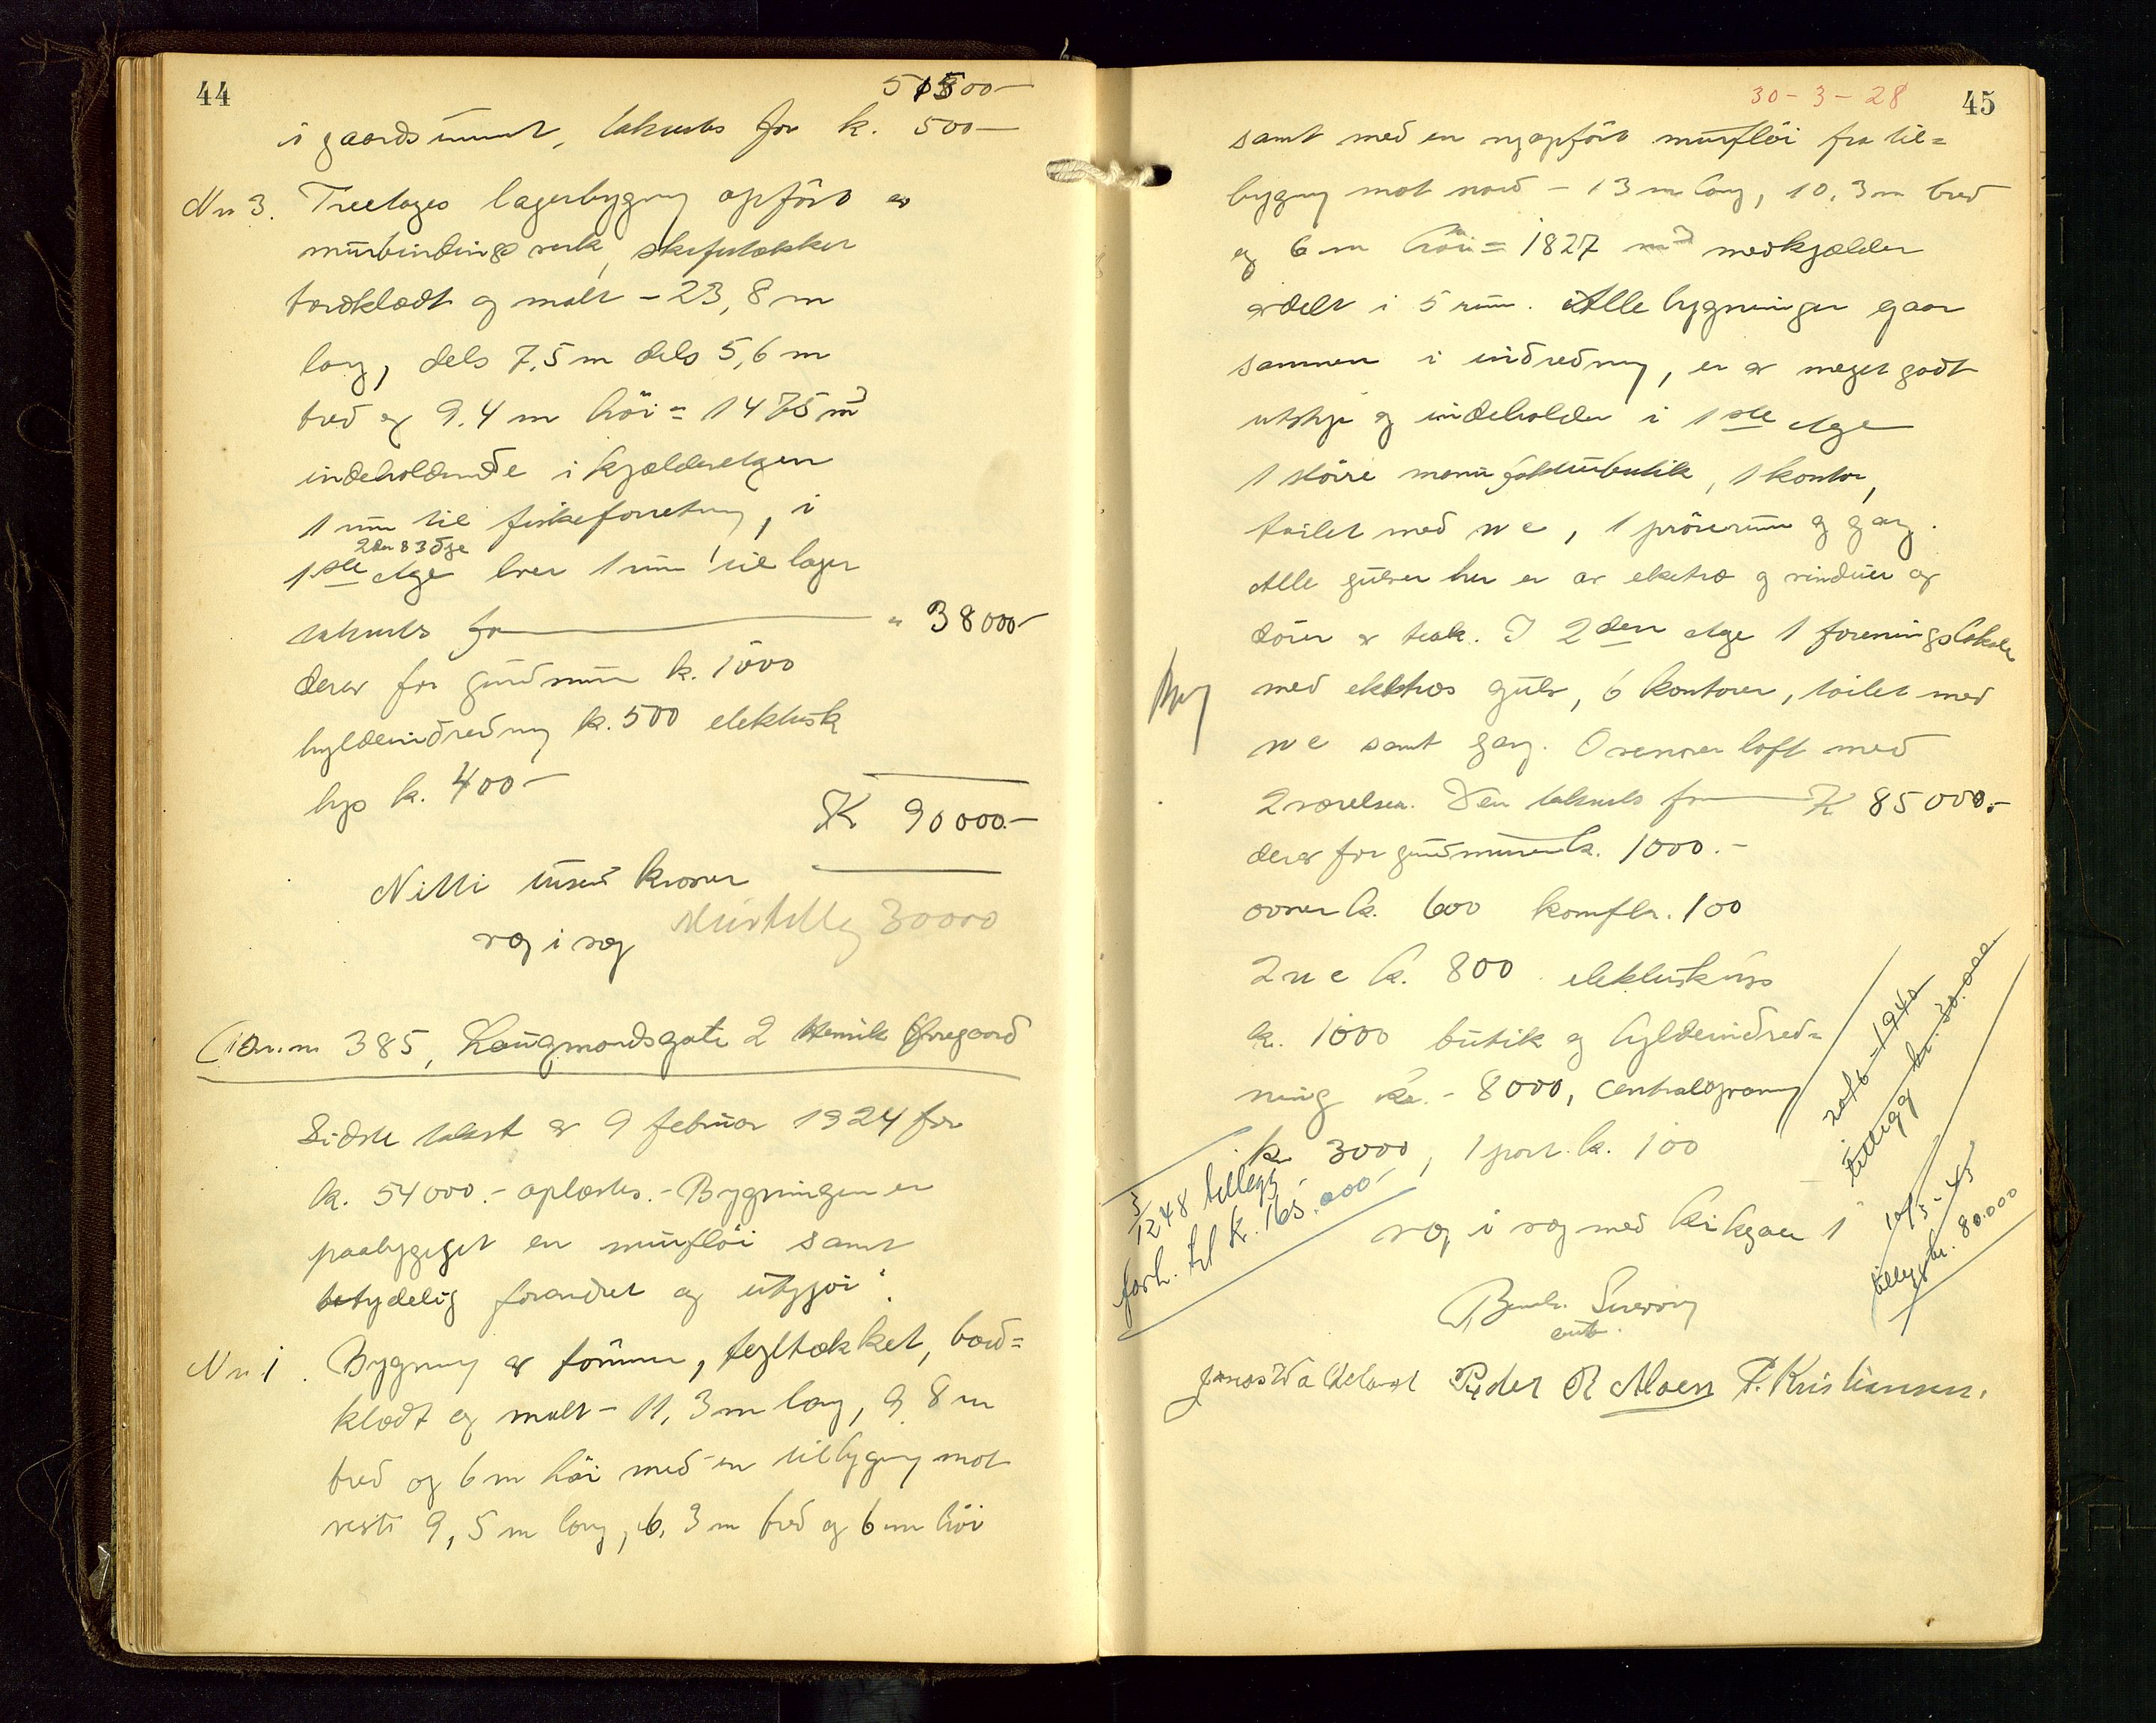 44
51500-
i gaards, takseres for k. 500-
Nr 3. Treetages lagerbygning opført av
murbindingsverk, skifertækket
bordklædt og malt - 23,8 m
lang, dels 7,5 m dels 5,6 m
bred og 9.4 m høi = 1475 m3
indeholdende i kjælderetagen
1 rum til fiskeforretning, i
2den & 3dje
1ste etage hver 1 rum til lager
takseres for " 38000-
derav for grundmur k. 1000
hyldeindredning k. 500 elektrisk
lys k. 400-
K 90000.-
Nitti tusen kroner
væg i væg Murtillæg 30000
Br.nr. 385, Haugmandsgate 2 Henrik Øvregaard
Sidste takst av 9 februar 1924 for
k. 54000.- opløstes.- Bygningen er
paabygget en murfløi samt
betydelig forandret og utbygget:
Nr 1. Bygning av tømmer, tegltækket, bord=
klædt og malt - 11,3 m lang, 9,8 m
bred og 6 m høi med en tilbygning mot
vest 9,5 m lang, 6,3 m bred og 6 m høi
30-3-28 45
samt med en nyopført murfløi fra til=
bygning mot nord - 13 m lang, 10,3 m bred
og 6 m høi = 1827 m3 med kjælder
avdelt i 5 rum. Alle bygninger gaar
sammen i indredning, er av meget godt
utstyr og indeholder i 1ste etage
1 større manufakturbutik, 1 kontor,
toilet med wc, 1 prøverum og gang.
Alle gulver her er av eketræ og vinduer og
dører av teak. I 2den etage 1 foreningslokale
med eketræs gulv, 6 kontorer, toilet med
wc samt gang. Ovenover loft med
2 værelser. Den takseres for K 85000.-
derav for grundmuren k. 1000.-
ovner k. 600 komfbr. 100
2 wc k. 800 elektrisk lys
k. 1000 butik og hyldeindred=
ning kr. - 8000, centralopvarmn
k. 3000, 1 port. k. 100
væg i væg med
3/12 48 tillegg
forh. til k. 165.000-
20/6-1940
tillegg kr. 30.000
10/5-43
tillegg kr. 80.000
Jonas Vadeland Peder R Moen P. Kristiansen.